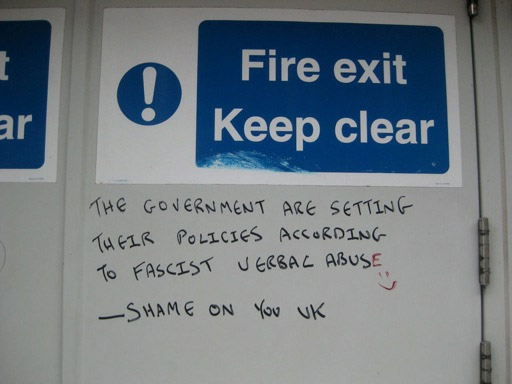 t
ar
Fire exit
Keep clear
THE GOVERNMENT ARE SETTING
THEIR POLICIES ACCORDING
TO FASCIST VERBAL ABUSE
—SHAME ON YOU UK